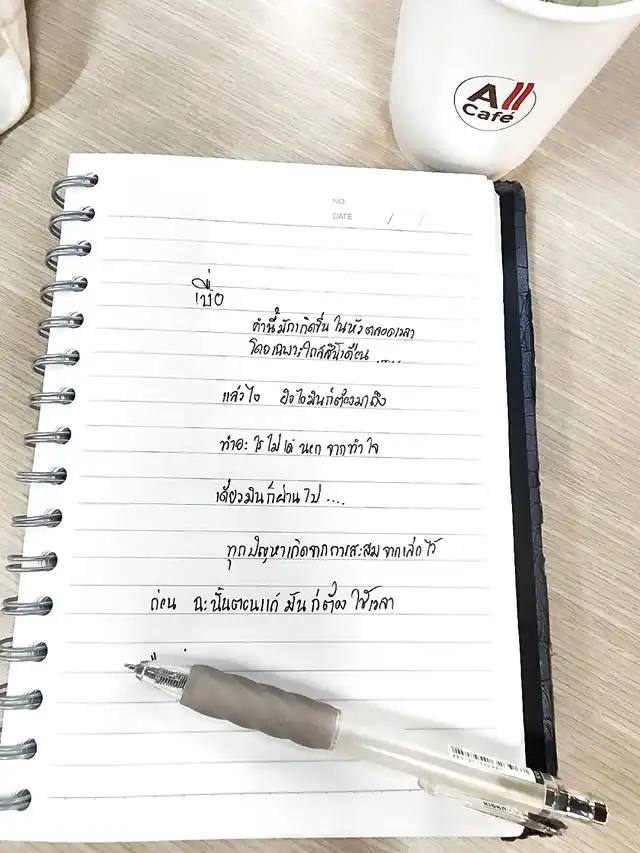 All
Café
NO.
DATE / /
เบื่อ
คำนี้มักเกิดขึ้นในหัวตลอดเวลา
โดยเฉพาะใกล้สิ้นเดือน ......
แล้วไง ยังไงมันก็ต้องมาถึง
ทำอะไรไม่ได้ นอกจากทำใจ
เดี๋ยวมันก็ผ่านไป ....
ทุกปัญหาเกิดจากการสะสมจากเล็กไว้
ก่อน ฉะนั้นตอนแก้ มันก็ต้องใช้เวลา